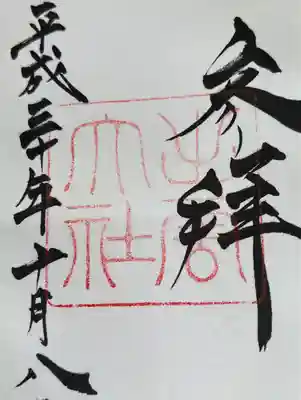 参拝
出雲大社
平成三十年十月八